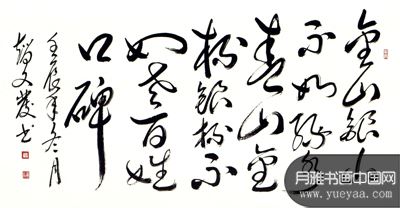 金山银山
不如绿水
青山金
杯银杯不
如老百姓
口碑
壬辰年冬月
赵文发书
月雅书画中国网
www.yueyaa.com